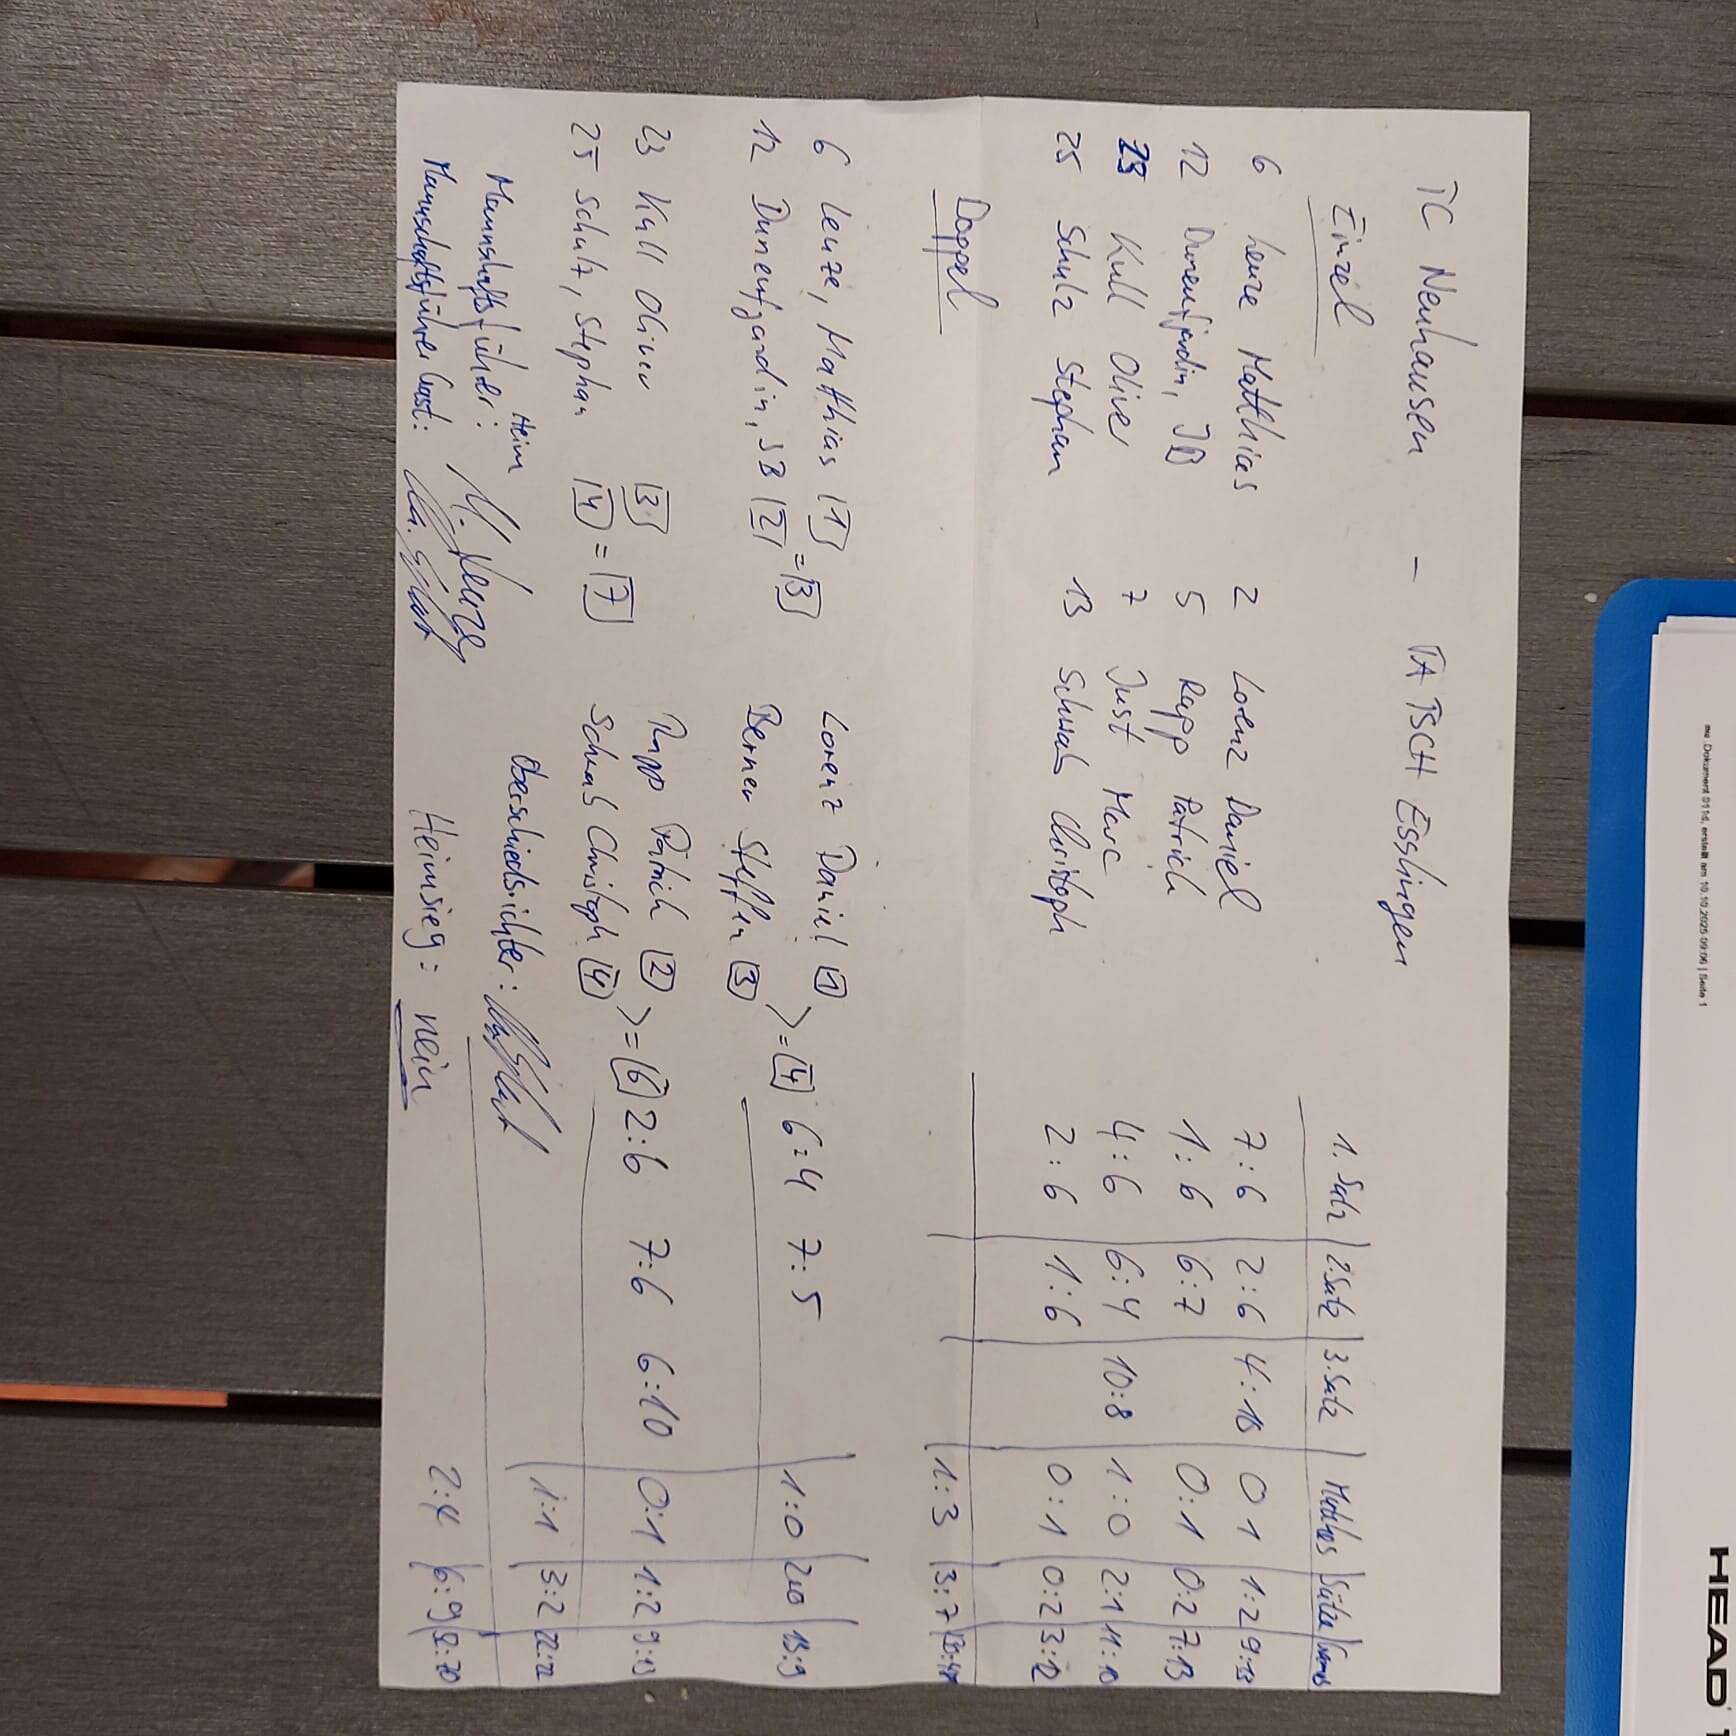 TC Neuhausen - TA TSCH Esslingen
Einzel 1. Satz 2. Satz 3. Satz Matches Sätze Games
6 Leuze Matthias 2 Lorenz Daniel 7:6 2:6 4:10 0 1 1:2 9:13
12 Dunenfjardin, JB 5 Rapp Patrick 1:6 6:7 0:1 0:2 7:13
23 Kull Oliver 7 Just Marc 4:6 6:4 10:8 1:0 2:1 11:10
25 Schulz Stephan 13 Schwab Christoph 2:6 1:6 0:1 0:2 3:12
1:3 3:7
Doppel
6 Leuze, Matthias 1 Lorenz Daniel 1
12 Dunenfjardin, JB 2 = 3 Berner Steffen 3 > = 4 6:4 7:5 1:0 2:0 13:9
23 Kull Oliver 3 Rapp Patrick 2
25 Schulz, Stephan 4 = 7 Schwab Christoph 4 > = 6 2:6 7:6 6:10 0:1 1:2 9:13
1:1 3:2 22:22
Mannschaftsführer Heim: M. Leuze Oberschiedsrichter:
Mannschaftsführer Gast: Heimsieg: nein 2:4 6:9
Dokument 011d, erstellt am 10.10.2025 09:06 | Seite 1
HEAD